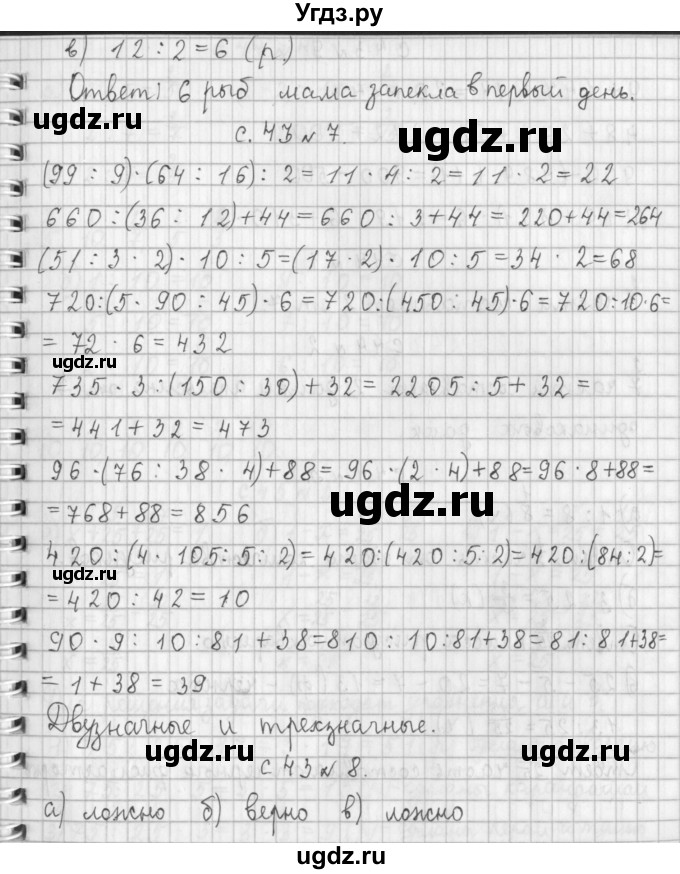 Угдз.ру
в) 12 : 2 = 6 (р.)
Ответ: 6 рыб мама запекла в первый день.
ugdz.ru ugdz.ru
с. 43 № 7.
(99 : 9) · (64 : 16) : 2 = 11 · 4 : 2 = 11 · 2 = 22
660 : (36 : 12) + 44 = 660 : 3 + 44 = 220 + 44 = 264
(51 : 3 · 2) · 10 : 5 = (17 · 2) · 10 : 5 = 34 · 2 = 68
720 : (5 · 90 : 45) · 6 = 720 : (450 : 45) · 6 = 720 : 10 · 6 =
= 72 · 6 = 432
ugdz.ru
735 · 3 : (150 : 30) + 32 = 2205 : 5 + 32 =
= 441 + 32 = 473
96 · (76 : 38 · 4) + 88 = 96 · (2 · 4) + 88 = 96 · 8 + 88 =
= 768 + 88 = 856
ugdz.ru
420 : (4 · 105 : 5 : 2) = 420 : (420 : 5 : 2) = 420 : (84 : 2) =
ugdz.ru
= 420 : 42 = 10
90 · 9 : 10 : 81 + 38 = 810 : 10 : 81 + 38 = 81 : 81 + 38 =
= 1 + 38 = 39
Двузначные и трехзначные.
ugdz.ru ugdz.ru
с 43 № 8.
а) ложно б) верно в) ложно
ugdz.ru